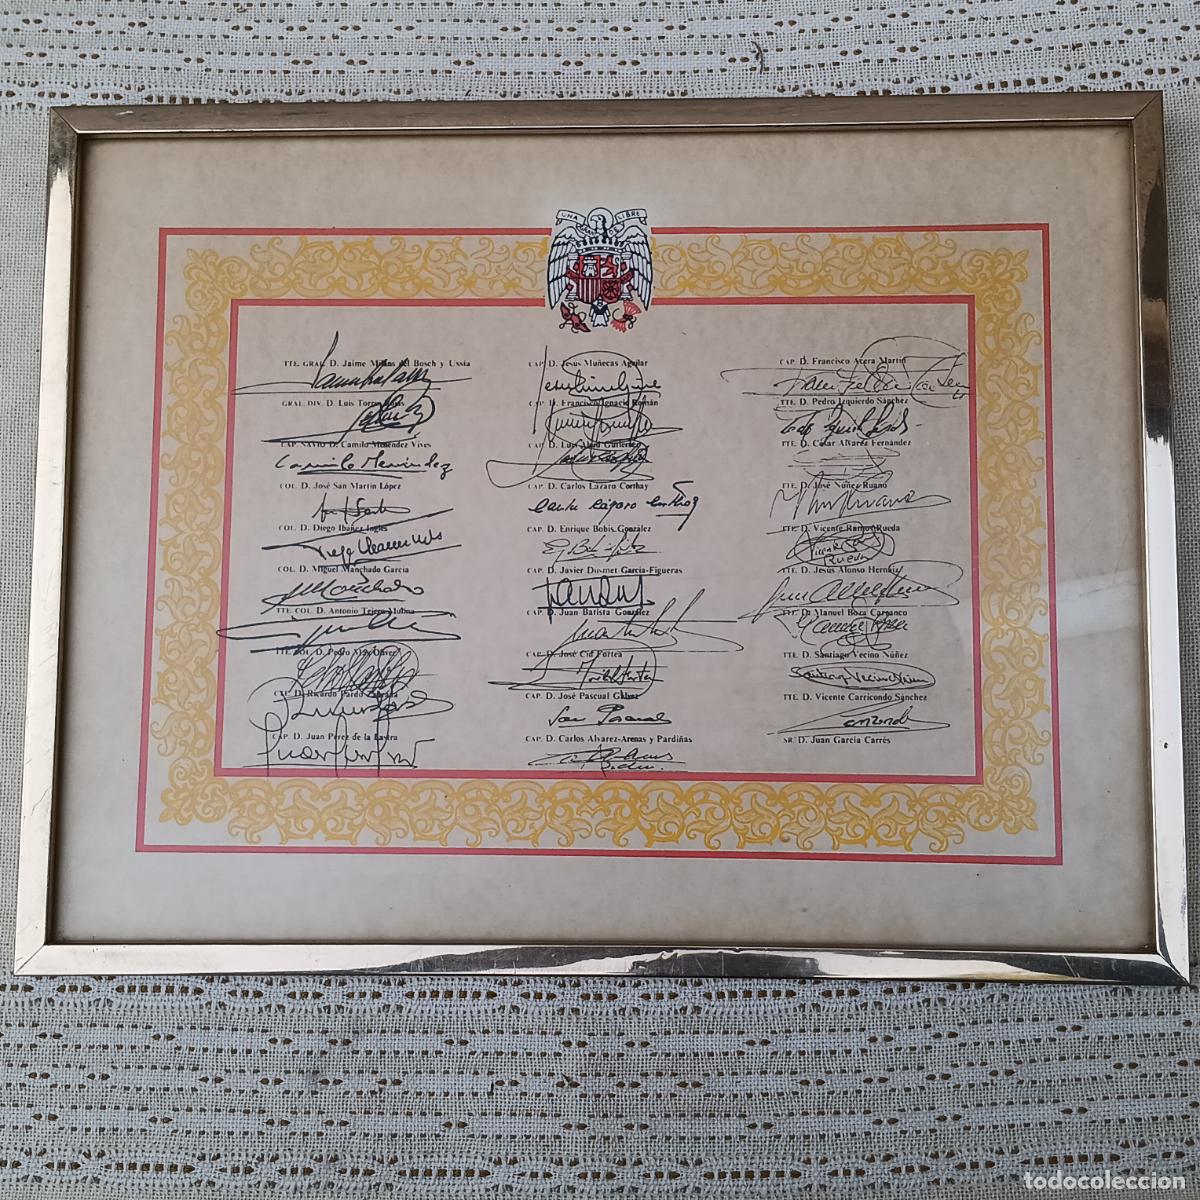 UNA LIBRE
TTE. GRAL. D. Jaime Milans del Bosch y Ussía
GRAL. DIV. D. Luis Torres Rojas
CAP. NAVIO D. Camilo Menéndez Vives
Camilo Menéndez
COL. D. José San Martín López
COL. D. Diego Ibáñez Inglés
COL. D. Miguel Manchado García
TTE. COL. D. Antonio Tejero Molina
TTE. COL. D. Pedro Mas Oliver
CAP. D. Ricardo Pardo Zancada
CAP. D. Juan Pérez de la Lastra
CAP. D. Jesús Muñecas Aguilar
CAP. D. Francisco Ignacio Román
CAP. D. Luis Abad Gutiérrez
CAP. D. Carlos Lázaro Corthay
Carlos Lázaro Corthay
CAP. D. Enrique Bobis González
CAP. D. Javier Dusmet García-Figueras
CAP. D. Juan Batista González
CAP. D. José Cid Fortea
CAP. D. José Pascual Gálvez
José Pascual
CAP. D. Carlos Alvarez-Arenas y Pardiñas
CAP. D. Francisco Acera Martín
TTE. D. Pedro Izquierdo Sánchez
TTE. D. César Alvarez Fernández
TTE. D. José Núñez Ruano
TTE. D. Vicente Ramos Rueda
Vicente Ramos
Rueda
TTE. D. Jesús Alonso Hernáiz
TTE. D. Manuel Boza Carranco
Manuel Boza
TTE. D. Santiago Vecino Núñez
Santiago Vecino Núñez
TTE. D. Vicente Carricondo Sánchez
SR. D. Juan García Carrés
todocoleccion